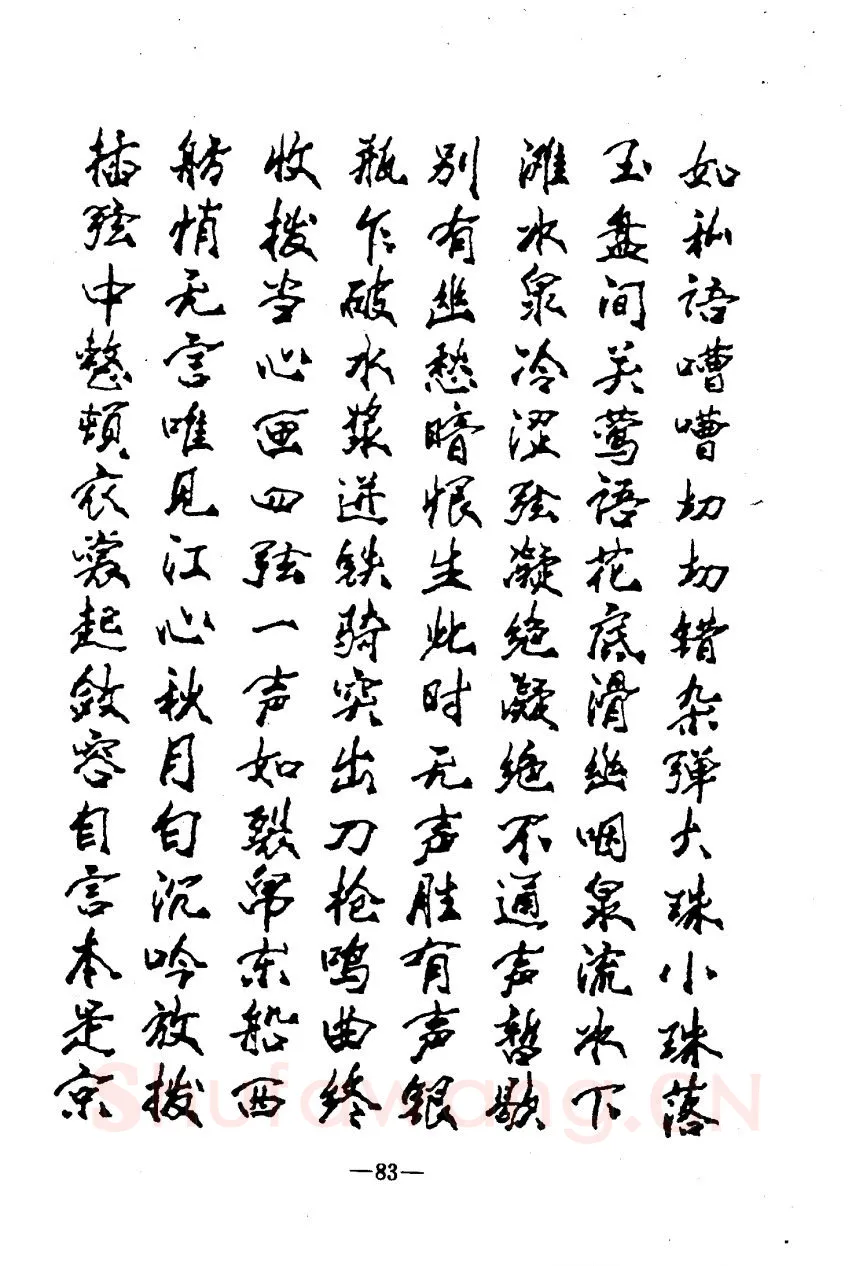 如私语嘈嘈切切错杂弹大珠小珠落
玉盘间关莺语花底滑幽咽泉流冰下
滩冰泉冷涩弦凝绝凝绝不通声暂歇
别有幽愁暗恨生此时无声胜有声银
瓶乍破水浆迸铁骑突出刀枪鸣曲终
收拨当心画四弦一声如裂帛东船西
舫悄无言唯见江心秋月白沉吟放拨
插弦中整顿衣裳起敛容自言本是京
—83—
Shufawang.CN